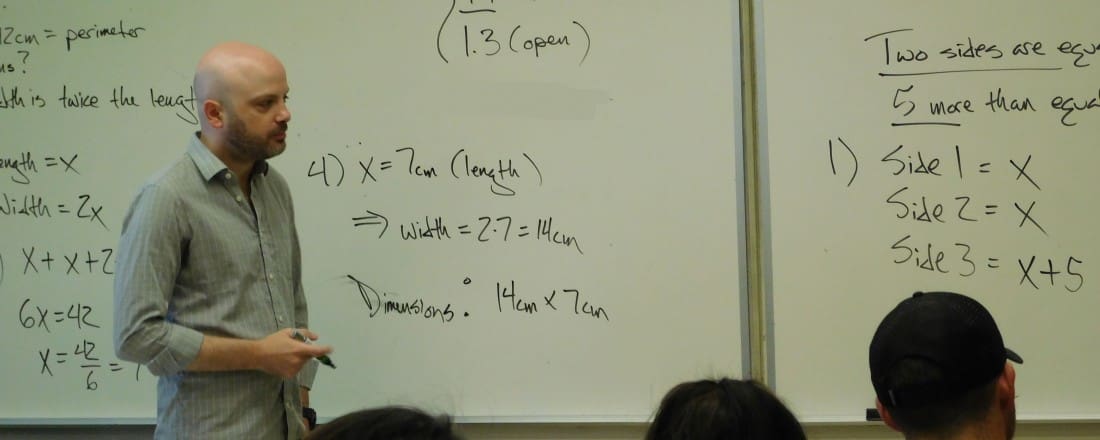 2cm = perimeter
ns?
dth is twice the lengt
ength = x
Width = 2x
) x + x + 2
6x = 42
x = 42/6 =
1.3 (open)
4) x = 7cm (length)
⇒ width = 2·7 = 14cm
Dimensions: 14cm x 7cm
Two sides are equ
5 more than equa
1) Side 1 = x
Side 2 = x
Side 3 = x+5